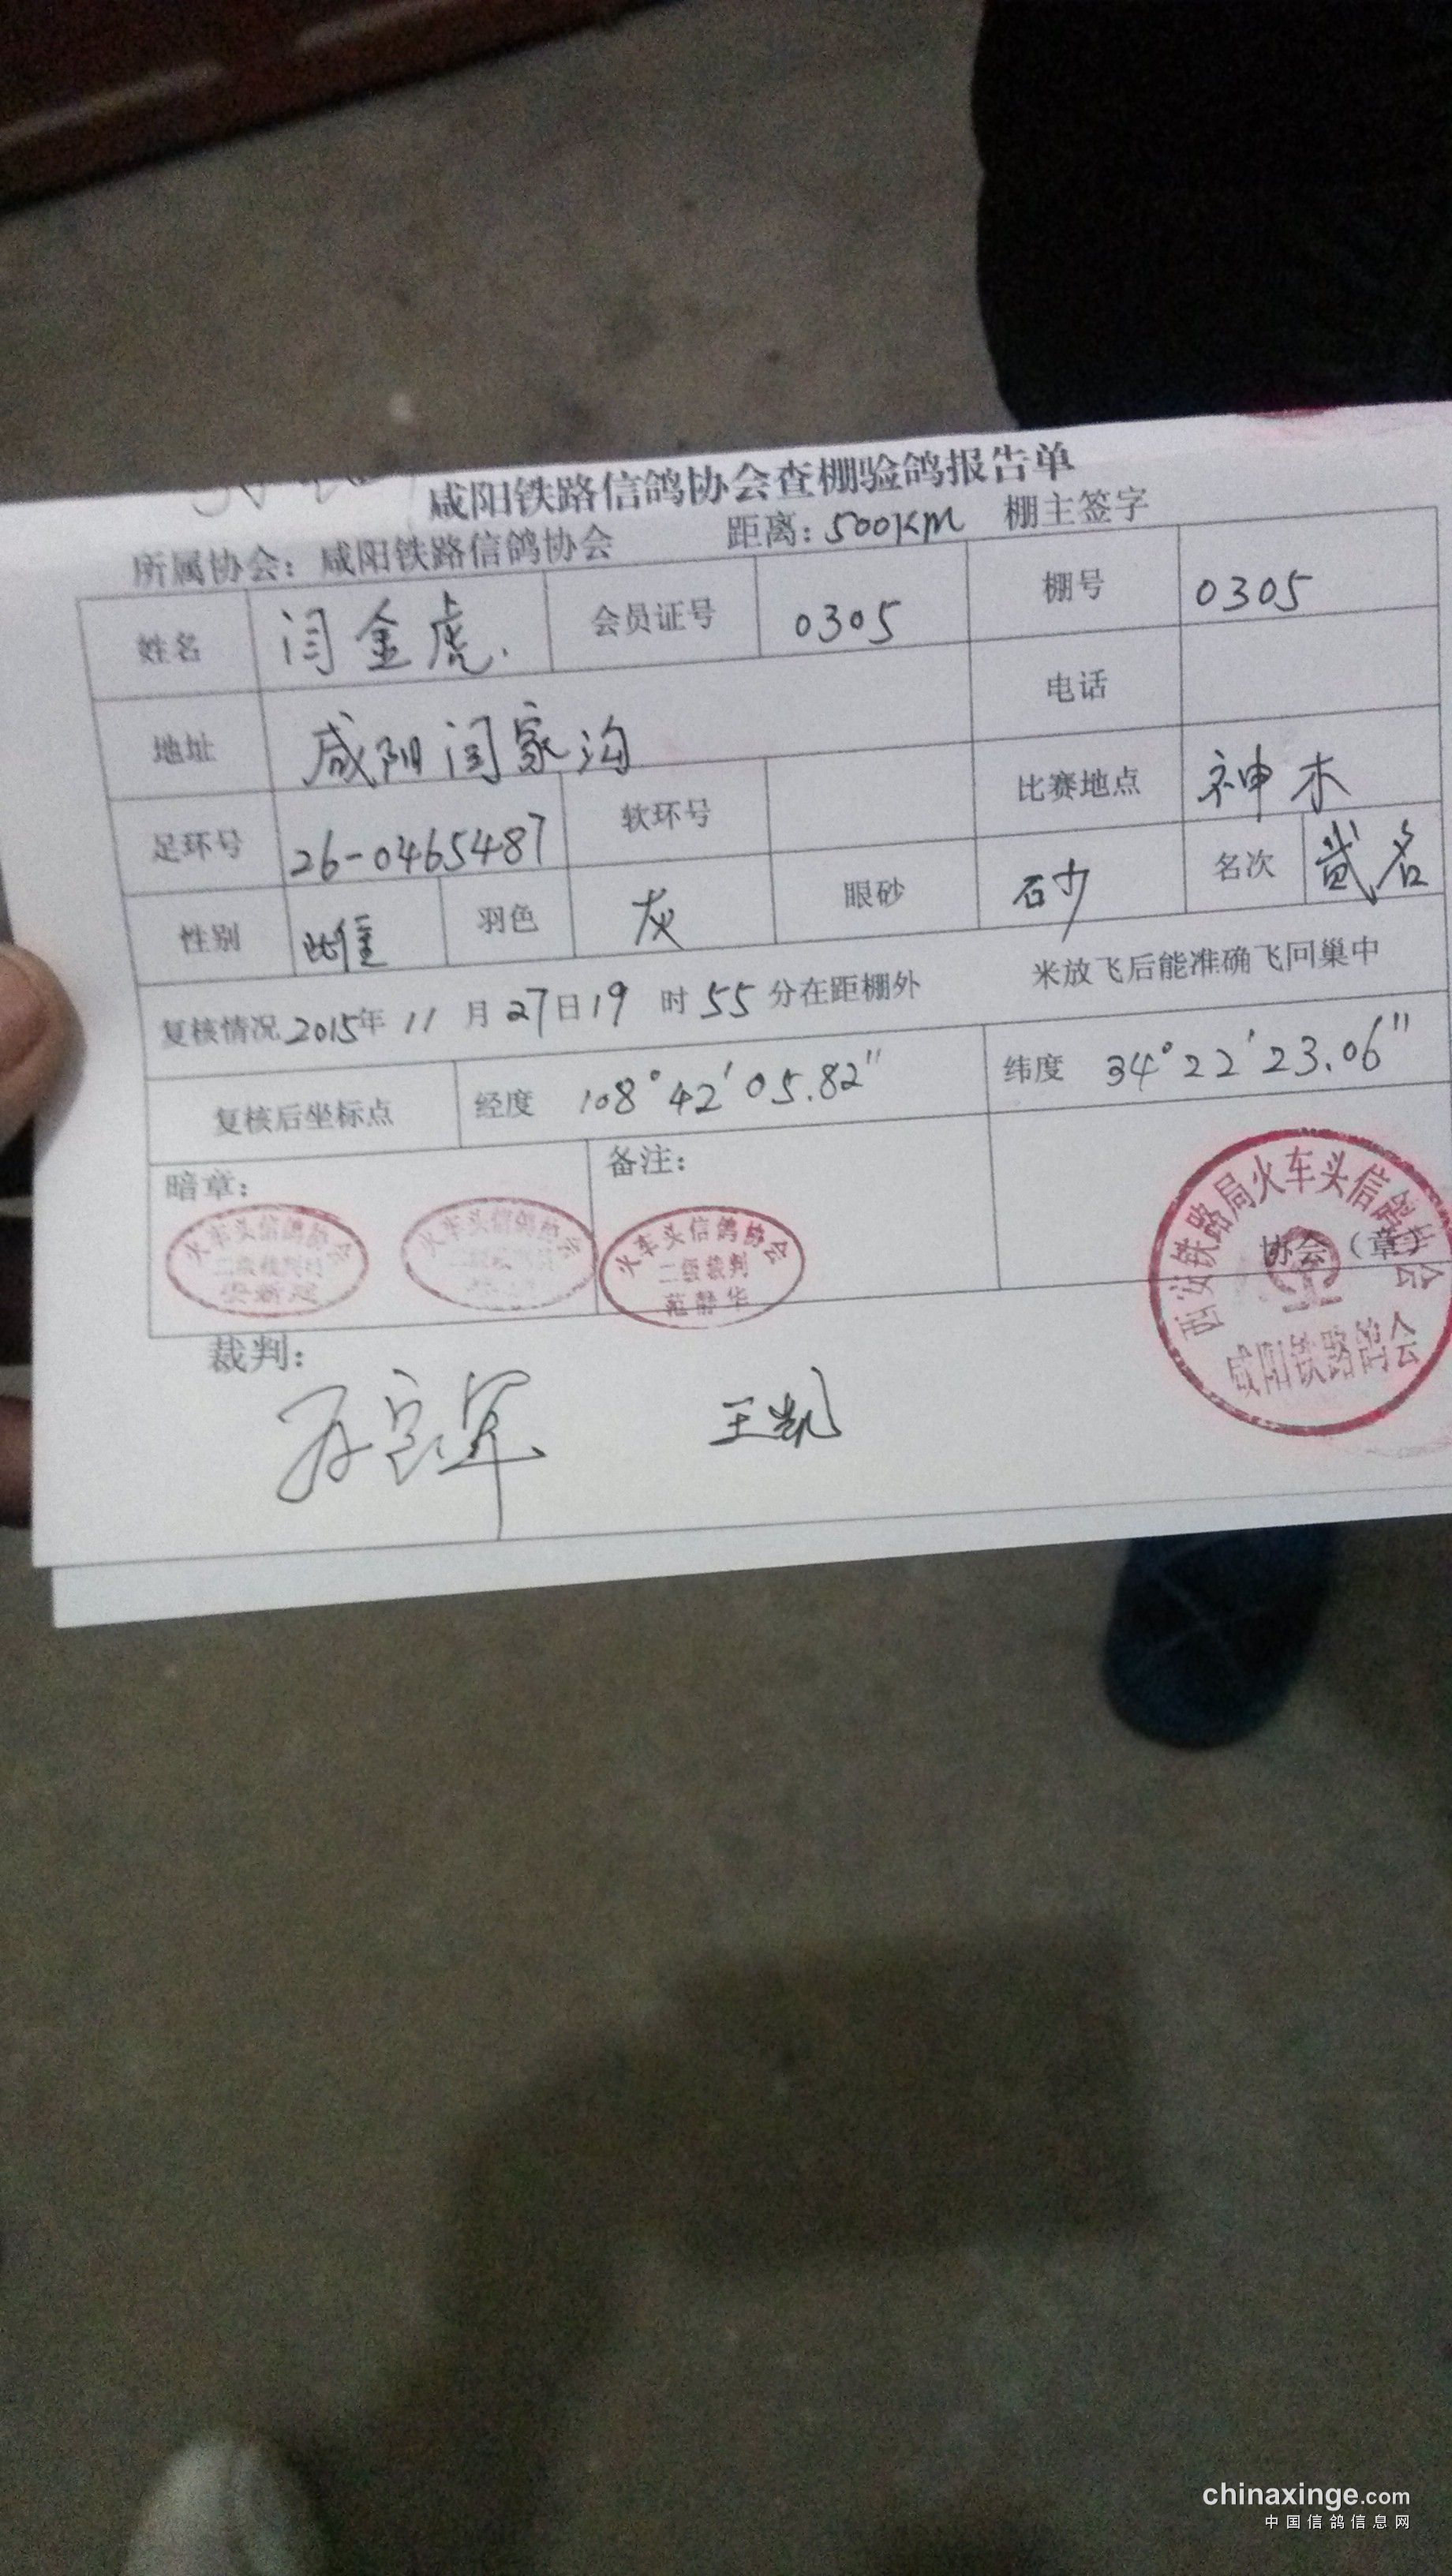 咸阳铁路信鸽协会查棚验鸽报告单
所属协会：咸阳铁路信鸽协会 距离：500KM 棚主签字
姓名 闫金虎. 会员证号 0305 棚号 0305
地址 咸阳闫家沟 电话
足环号 26-0465487 软环号 比赛地点 神木
性别 雌 羽色 灰 眼砂 砂 名次 贰名
复核情况 2015年 11 月 27日 19 时 55 分在距棚外 米放飞后能准确飞回巢中
复核后坐标点 经度 108°42′05.82″ 纬度 34°22′23.06″
暗章： 备注：
火车头信鸽协会
二级裁判
火车头信鸽协会
火车头信鸽协会
二级裁判
范静华
西安铁路局火车头信鸽协会
协会（章）
咸阳铁路鸽会
裁判：
王凯
chinaxinge.com
中国信鸽信息网